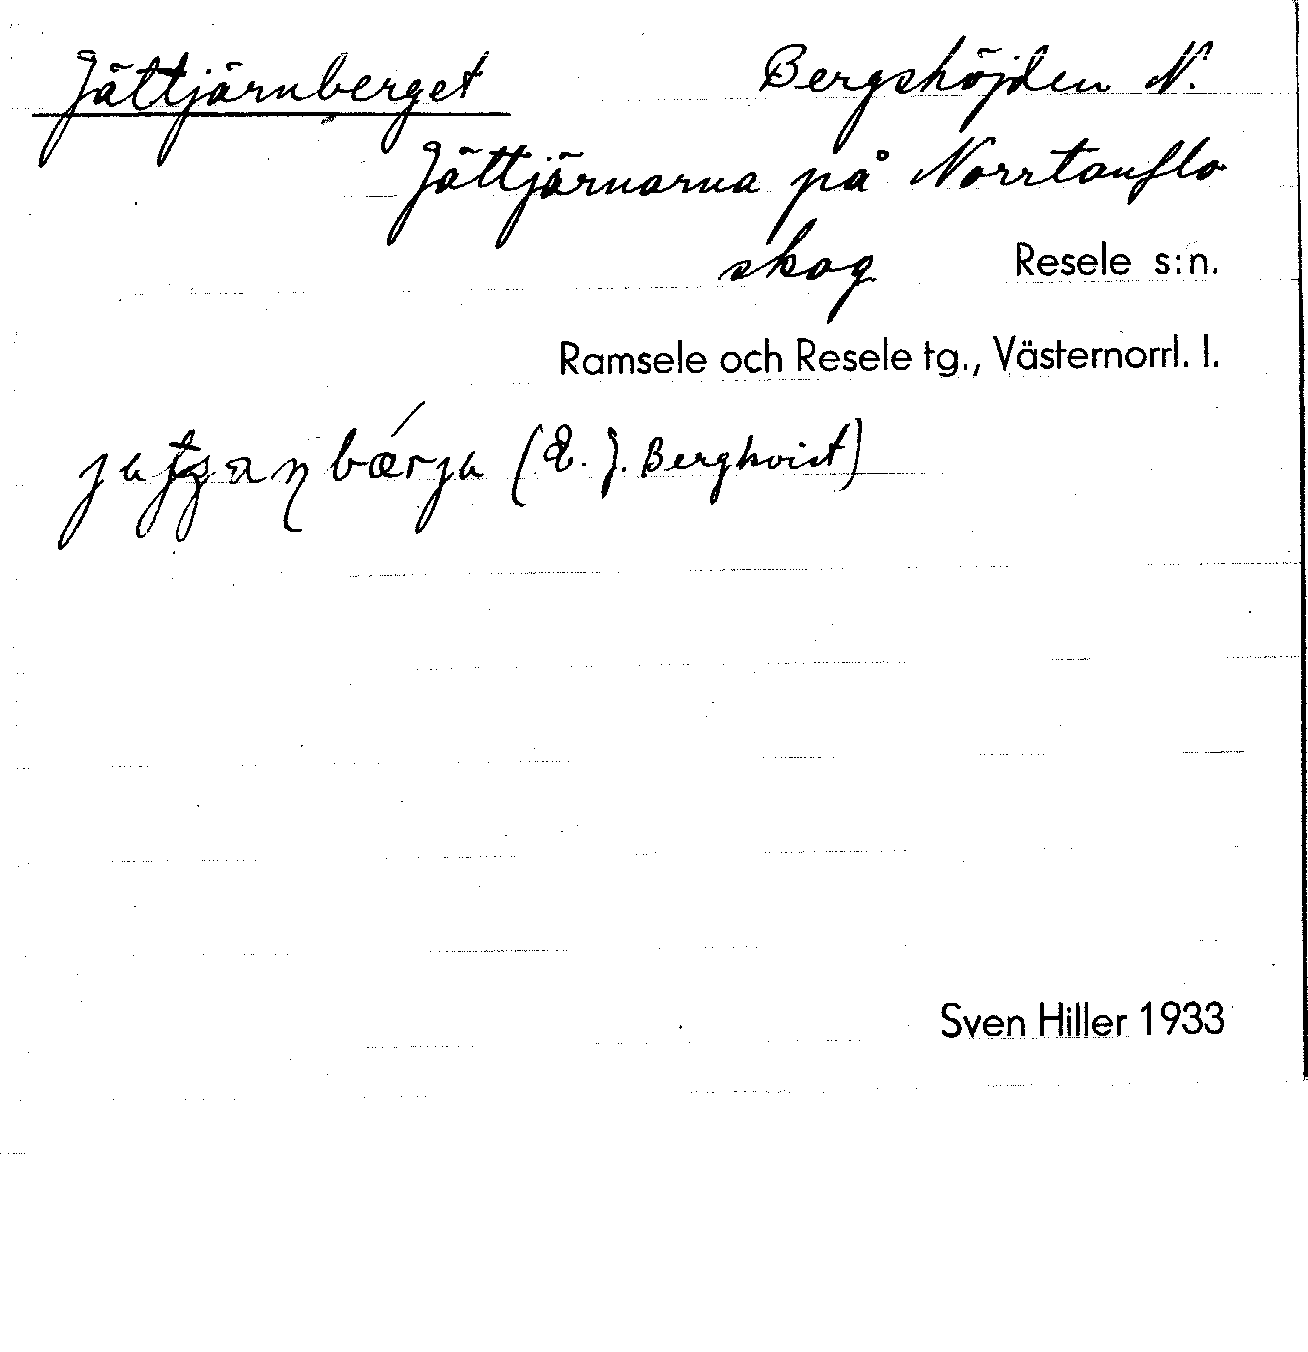 Jättjärnberget Bergshöjden N.
Jättjärnarna på Norrtanflo
skog Resele s:n.
Ramsele och Resele tg., Västernorrl. l.
(E. J. Berghvist)
Sven Hiller 1933